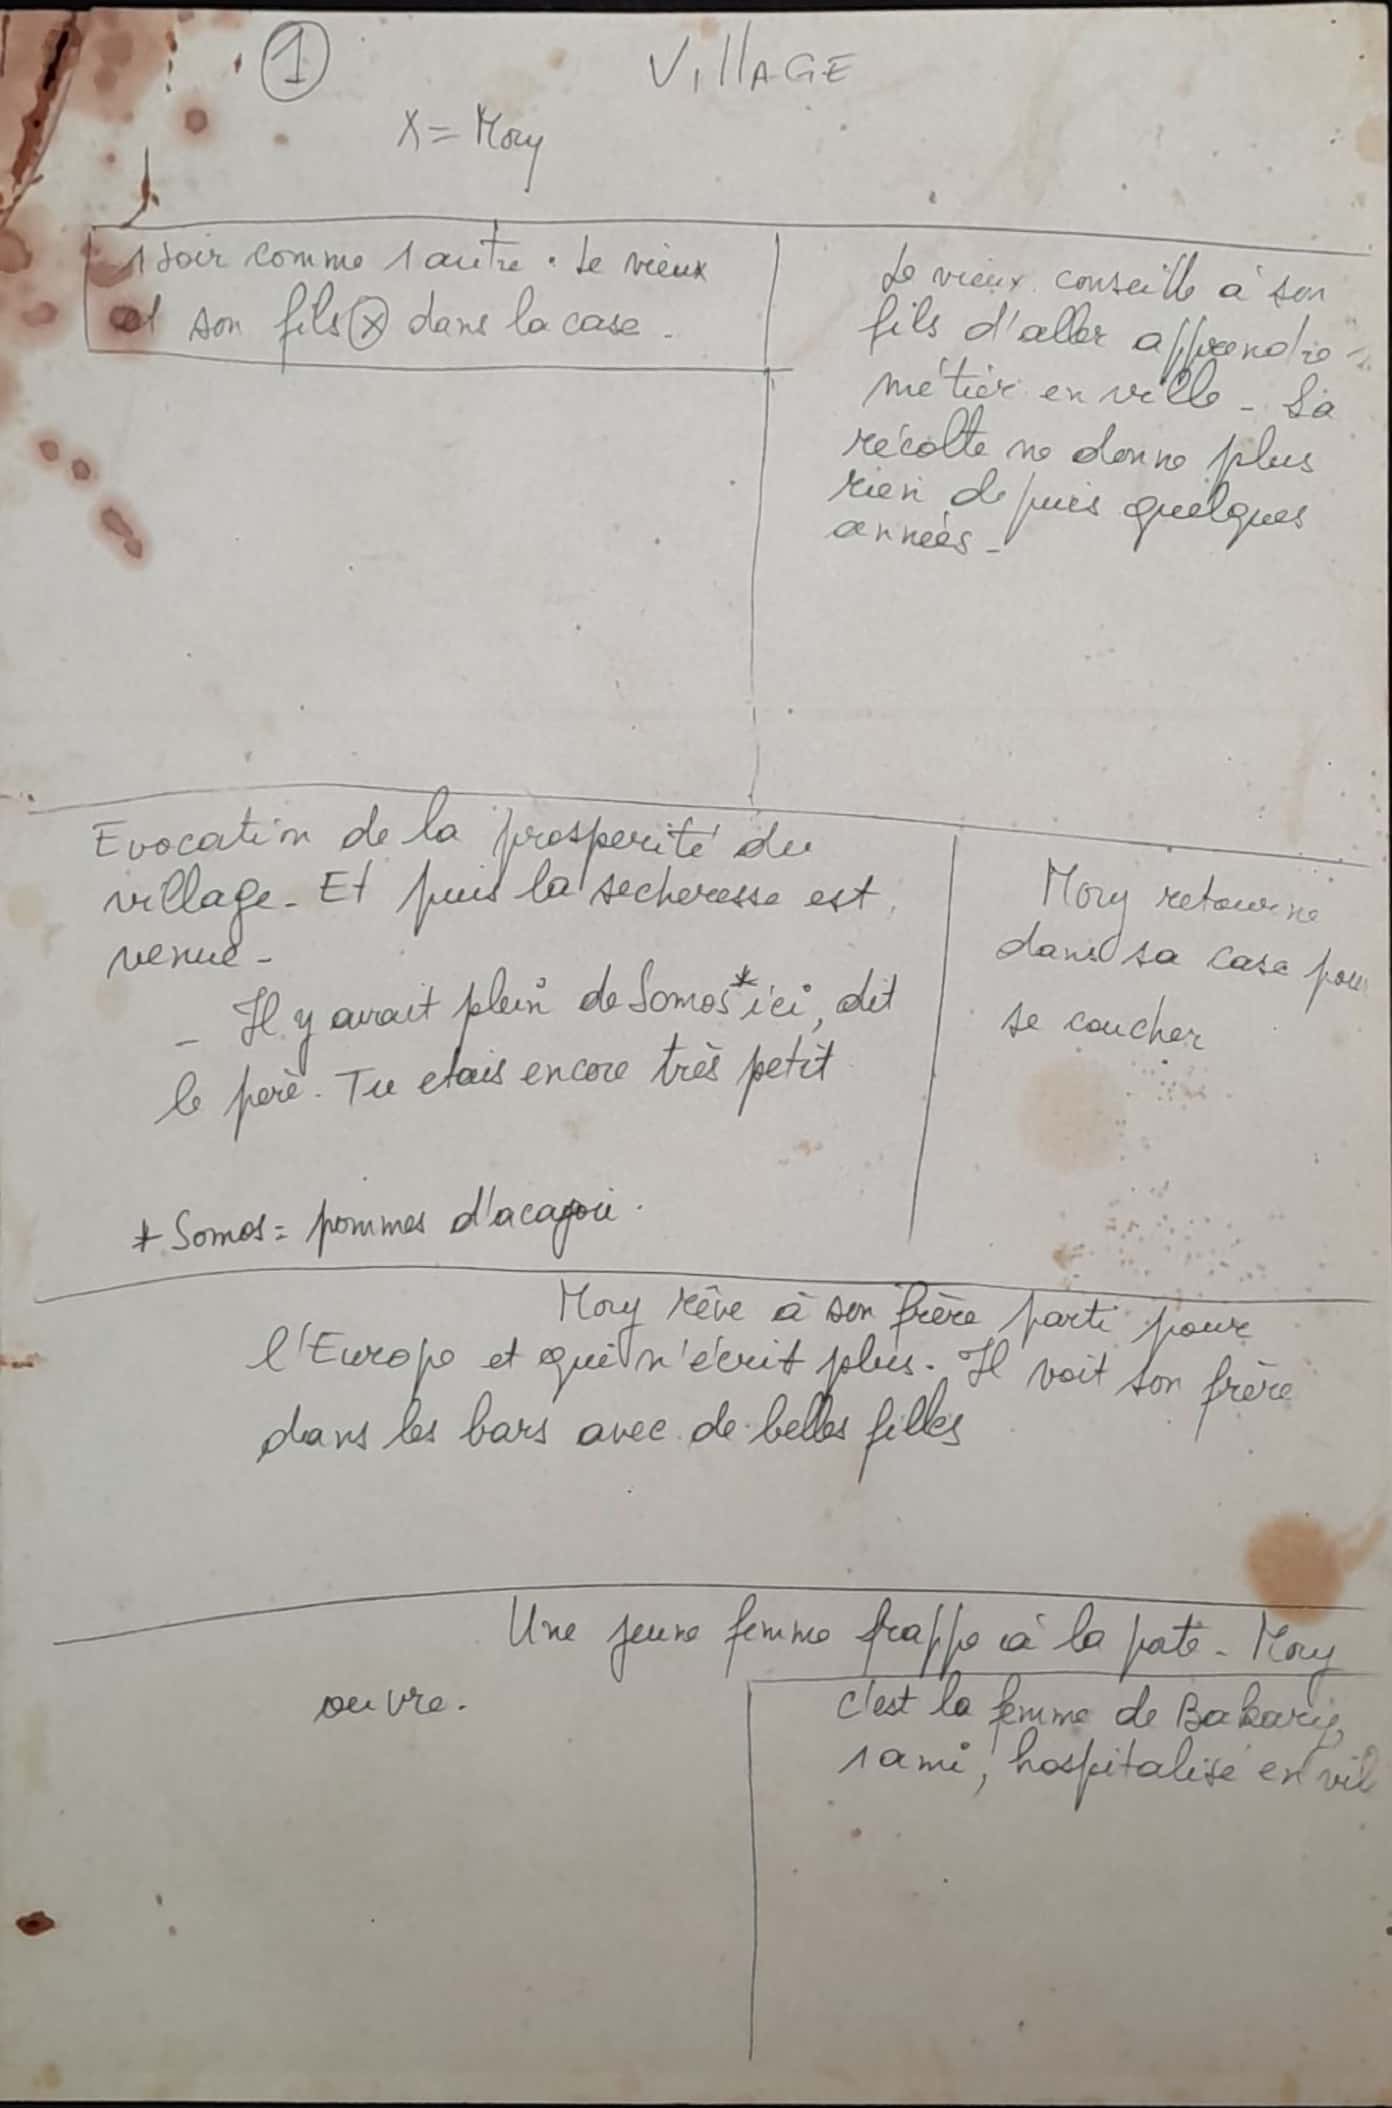 1
VIllAGE
X = Mory
1 soir comme 1 autre. Le vieux
et son fils (X) dans la case.
Le vieux conseille à son
fils d'aller apprendre 1
métier en ville - La
récolte ne donne plus
rien depuis quelques
années -
Evocation de la prosperité du
village - Et puis la secheresse est
venue -
- Il y avait plein de Somos* ici, dit
le père. Tu etais encore très petit
* Somos = pommes d'acajou.
Mory retourne
dans sa case pour
se coucher
Mory rêve à son frère parti pour
l'Europe et qui n'écrit plus. Il voit son frère
dans les bars avec de belles filles
Une jeune femme frappe à la porte - Mory
ouvre.
c'est la femme de Bakary,
1 ami, hospitalisé en vil